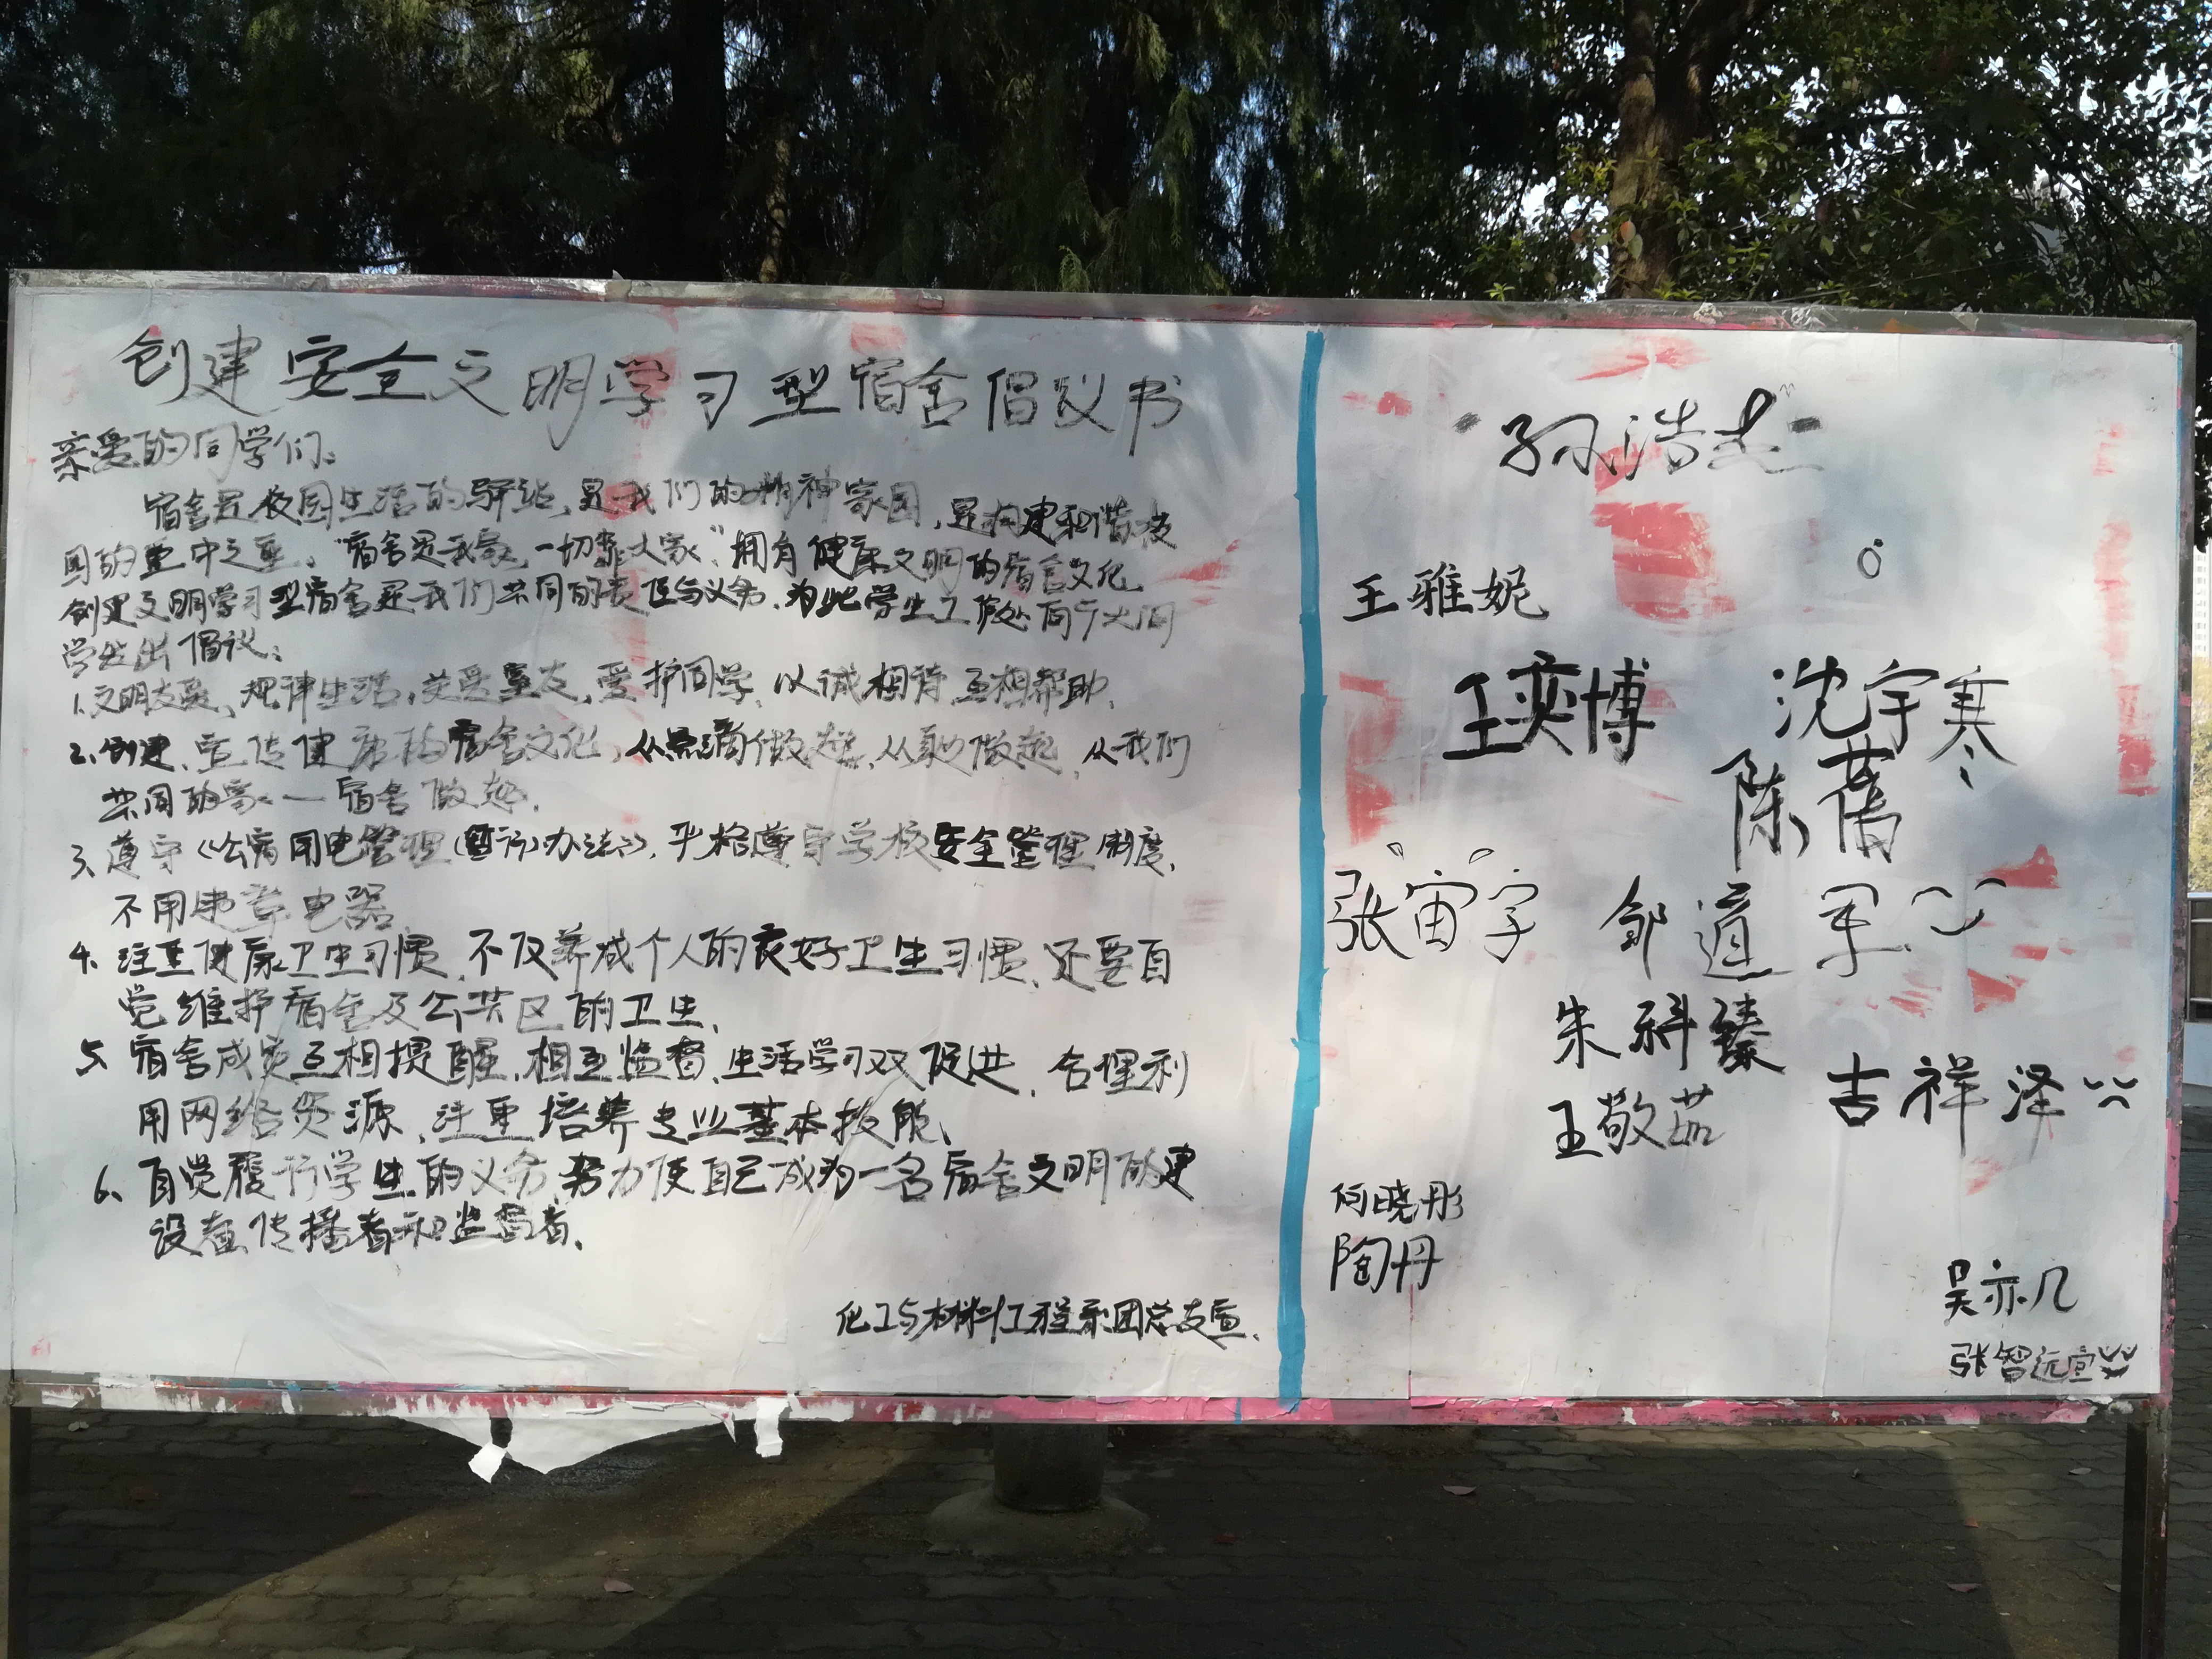 创建安全文明学习型宿舍倡议书
亲爱的同学们:
宿舍是校园生活的驿站,是我们的精神家园,是构建和谐校
园的重中之重。"宿舍是我家,一切靠大家"拥有健康文明的宿舍文化
创建文明学习型宿舍是我们共同的责任与义务,为此学生工作处向广大同
学发出倡议:
1.文明友爱、规律生活,关爱室友,爱护同学,以诚相待,互相帮助.
2.创建、宣传健康的宿舍文化,从点滴做起,从身边做起,从我们
共同的家—宿舍做起.
3、遵守《公寓用电管理(暂行)办法》,严格遵守学校安全管理制度,
不用违章电器
4、注重健康卫生习惯,不仅养成个人的良好卫生习惯,还要自
觉维护宿舍及公共区的卫生、
5、宿舍成员互相提醒,相互监督,生活学习双促进,合理利
用网络资源,注重培养专业基本技能、
6、自觉履行学生的义务,努力使自己成为一名宿舍文明的建
设者传播者和监督者.
化工与材料工程系团总支宣.
孙浩志
王雅妮
王奕博
沈宇寒
陈蒨
张宙宇
邹道军
朱科臻
王敬茹
吉祥泽
何晓彤
陶丹
吴亦凡
张智远宣